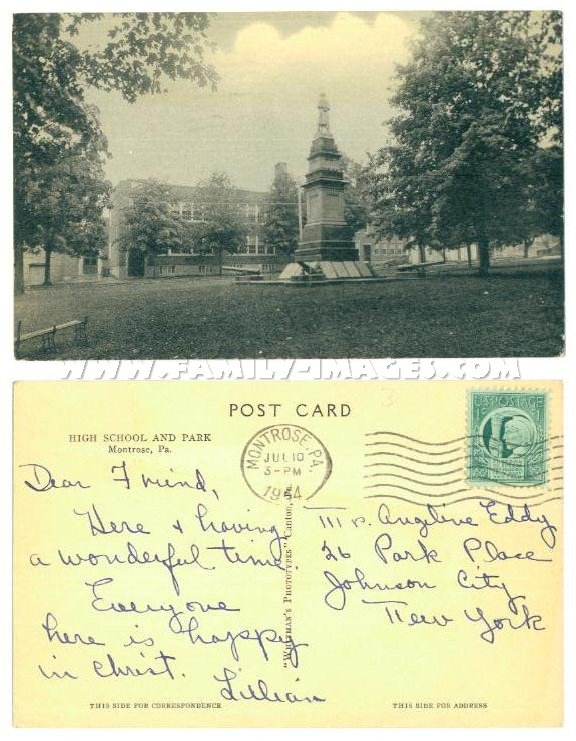 WWW.FAMILY-IMAGES.COM
POST CARD
HIGH SCHOOL AND PARK
Montrose, Pa.
MONTROSE, PA.
JUL 10
1944
U.S. POSTAGE
Dear Friend,
Here & having
a wonderful time.
Everyone
here is happy
in Christ.
Lillian
"WHENMAN'S PHOTOTYPES" Canton, Pa.
Angeline Eddy
26 Park Place
Johnson City
New York
THIS SIDE FOR CORRESPONDENCE
THIS SIDE FOR ADDRESS